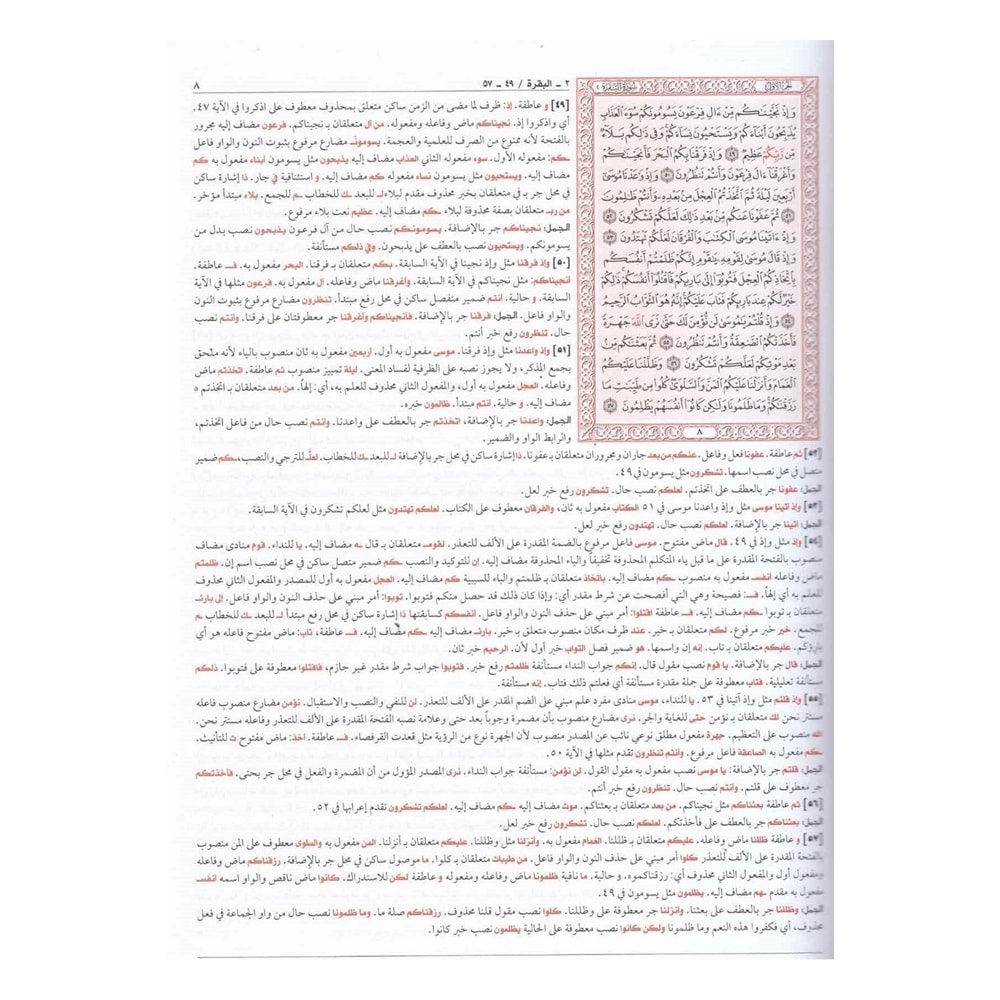 ٨
٢ ـ البقرة / ٤٩ ـ ٥٧
الجزء الأول
سورة البقرة ٢
وَإِذْ نَجَّيْنَٰكُم مِّنْ ءَالِ فِرْعَوْنَ يَسُومُونَكُمْ سُوٓءَ الْعَذَابِ
يُذَبِّحُونَ أَبْنَآءَكُمْ وَيَسْتَحْيُونَ نِسَآءَكُمْ وَفِى ذَٰلِكُم بَلَآءٌ
مِّن رَّبِّكُمْ عَظِيمٌ ٤٩ وَإِذْ فَرَقْنَا بِكُمُ الْبَحْرَ فَأَنجَيْنَٰكُمْ
وَأَغْرَقْنَآ ءَالَ فِرْعَوْنَ وَأَنتُمْ تَنظُرُونَ ٥٠ وَإِذْ وَٰعَدْنَا مُوسَىٰٓ
أَرْبَعِينَ لَيْلَةً ثُمَّ اتَّخَذْتُمُ الْعِجْلَ مِنۢ بَعْدِهِۦ وَأَنتُمْ ظَٰلِمُونَ
٥١ ثُمَّ عَفَوْنَا عَنكُم مِّنۢ بَعْدِ ذَٰلِكَ لَعَلَّكُمْ تَشْكُرُونَ ٥٢
وَإِذْ ءَاتَيْنَا مُوسَى الْكِتَٰبَ وَالْفُرْقَانَ لَعَلَّكُمْ تَهْتَدُونَ ٥٣
وَإِذْ قَالَ مُوسَىٰ لِقَوْمِهِۦ يَٰقَوْمِ إِنَّكُمْ ظَلَمْتُمْ أَنفُسَكُم
بِاتِّخَاذِكُمُ الْعِجْلَ فَتُوبُوٓا إِلَىٰ بَارِئِكُمْ فَاقْتُلُوٓا أَنفُسَكُمْ ذَٰلِكُمْ
خَيْرٌ لَّكُمْ عِندَ بَارِئِكُمْ فَتَابَ عَلَيْكُمْ إِنَّهُۥ هُوَ التَّوَّابُ الرَّحِيمُ
٥٤ وَإِذْ قُلْتُمْ يَٰمُوسَىٰ لَن نُّؤْمِنَ لَكَ حَتَّىٰ نَرَى اللَّهَ جَهْرَةً
فَأَخَذَتْكُمُ الصَّٰعِقَةُ وَأَنتُمْ تَنظُرُونَ ٥٥ ثُمَّ بَعَثْنَٰكُم مِّنۢ
بَعْدِ مَوْتِكُمْ لَعَلَّكُمْ تَشْكُرُونَ ٥٦ وَظَلَّلْنَا عَلَيْكُمُ
الْغَمَامَ وَأَنزَلْنَا عَلَيْكُمُ الْمَنَّ وَالسَّلْوَىٰ كُلُوا مِن طَيِّبَٰتِ مَا
رَزَقْنَٰكُمْ وَمَا ظَلَمُونَا وَلَٰكِن كَانُوٓا أَنفُسَهُمْ يَظْلِمُونَ ٥٧
٨
[٤٩] و عاطفة. إذ: ظرف لما مضى من الزمن ساكن متعلق بمحذوف معطوف على اذكروا في الآية ٤٧.
أي واذكروا إذ. نجيناكم ماض وفاعله ومفعوله. من آل متعلقان بـ نجيناكم. فرعون مضاف إليه مجرور
بالفتحة لأنه ممنوع من الصرف للعلمية والعجمة. يسومونـ مضارع مرفوع بثبوت النون والواو فاعل
ـكم: مفعوله الأول. سوء مفعوله الثاني العذاب مضاف إليه يذبحون مثل يسومون أبناء مفعول به كم
مضاف إليه. ويستحيون مثل يسومون نساء مفعوله كم مضاف إليه. و استئنافية في جار. ذا إشارة ساكن
في محل جر بـ في متعلقان بخبر محذوف مقدم لبلاء لـ للبعد ـك للخطاب ـم للجمع. بلاء مبتدأ مؤخر.
من ربـ متعلقان بصفة محذوفة لبلاء ـكم مضاف إليه. عظيم نعت بلاء مرفوع.
الجمل: نجيناكم جر بالإضافة. يسومونكم نصب حال من آل فرعون يذبحون نصب بدل من
يسومونكم. ويستحيون نصب بالعطف على يذبحون. وفي ذلكم مستأنفة.
[٥٠] وإذ فرقنا مثل وإذ نجينا في الآية السابقة. بكم متعلقان بـ فرقنا. البحر مفعول به. فـ عاطفة.
أنجيناكم: مثل نجيناكم في الآية السابقة. وأغرقنا ماض وفاعله. آل مفعول به. فرعون مثلها في الآية
السابقة. و حالية. أنتم ضمير منفصل ساكن في محل رفع مبتدأ. تنظرون مضارع مرفوع بثبوت النون
والواو فاعل. الجمل: فرقنا جر بالإضافة. فأنجيناكم وأغرقنا جر معطوفتان على فرقنا. وأنتم نصب
حال. تنظرون رفع خبر أنتم.
[٥١] وإذ واعدنا مثل وإذ فرقنا. موسى مفعول به أول. أربعين مفعول به ثان منصوب بالياء لأنه ملحق
بجمع المذكر، ولا يجوز نصبه على الظرفية لفساد المعنى. ليلة تمييز منصوب ثم عاطفة. اتخذتم ماض
وفاعله. العجل مفعول به أول، والمفعول الثاني محذوف للعلم به، أي: إلهاً. من بعد متعلقان بـ اتخذتم ه
مضاف إليه. و حالية. أنتم مبتدأ. ظالمون خبره.
الجمل: واعدنا جر بالإضافة، اتخذتم جر بالعطف على واعدنا. وأنتم نصب حال من فاعل اتخذتم،
والرابط الواو والضمير.
[٥٢] ثم عاطفة. عفونا فعل وفاعل. عنكم من بعد جاران ومجروران متعلقان بـ عفونا. ذا إشارة ساكن في محل جر بالإضافة لـ للبعد ـك للخطاب. لعلّـ للترجي والنصب، ـكم ضمير
متصل في محل نصب اسمها. تشكرون مثل يسومون في ٤٩.
الجمل: عفونا جر بالعطف على اتخذتم. لعلكم نصب حال. تشكرون رفع خبر لعل.
[٥٣] وإذ آتينا موسى مثل وإذ واعدنا موسى في ٥١ الكتاب مفعول به ثان، والفرقان معطوف على الكتاب. لعلكم تهتدون مثل لعلكم تشكرون في الآية السابقة.
الجمل: آتينا جر بالإضافة. لعلكم نصب حال. تهتدون رفع خبر لعل.
[٥٤] وإذ مثل وإذ في ٤٩. قال ماض مفتوح. موسى فاعل مرفوع بالضمة المقدرة على الألف للتعذر. لقومـ متعلقان بـ قال ـه مضاف إليه. يا للنداء. قوم منادى مضاف
منصوب بالفتحة المقدرة على ما قبل ياء المتكلم المحذوفة تخفيفاً والياء المحذوفة مضاف إليه. إن للتوكيد والنصب ـكم ضمير متصل ساكن في محل نصب اسم إن. ظلمتم
ماض وفاعله أنفسـ مفعول به منصوب ـكم مضاف إليه. باتخاذ متعلقان بـ ظلمتم والباء للسببية كم مضاف إليه. العجل مفعول به أول للمصدر والمفعول الثاني محذوف
للعلم به أي إلهاً. فـ: فصيحة وهي التي أفصحت عن شرط مقدر أي: وإذا كان ذلك قد حصل منكم فتوبوا. توبوا: أمر مبني على حذف النون والواو فاعل. إلى بارئـ
متعلقان بـ توبوا ـكم مضاف إليه. فـ عاطفة اقتلوا: أمر مبني على حذف النون والواو فاعل. أنفسكم كسابقتها ذا إشارة ساكن في محل رفع مبتدأ لـ للبعد ـك للخطاب ـم
للجمع. خير خبر مرفوع. لكم متعلقان بـ خير. عند ظرف مكان منصوب متعلق بـ خير. بارئـ مضاف إليه ـكم مضاف إليه. فـ عاطفة، تاب: ماض مفتوح فاعله هو أي
بارؤكم. عليكم متعلقان بـ تاب. إنه إن واسمها. هو ضمير فصل التواب خبر أول لأن. الرحيم خبر ثان.
الجمل: قال جر بالإضافة. يا قوم نصب مقول قال. إنكم جواب النداء مستأنفة ظلمتم رفع خبر. فتوبوا جواب شرط مقدر غير جازم، فاقتلوا معطوفة على فتوبوا. ذلكم
مستأنفة تعليلية. فتاب معطوفة على جملة مقدرة مستأنفة أي فعلتم ذلك فتاب. إنه مستأنفة.
[٥٥] وإذ قلتم مثل وإذ آتينا في ٥٣. يا للنداء، موسى منادى مفرد علم مبني على الضم المقدر على الألف للتعذر. لن للنفي والنصب والاستقبال. نؤمن مضارع منصوب فاعله
مستتر نحن لك متعلقان بـ نؤمن حتى للغاية والجر. نرى مضارع منصوب بأن مضمرة وجوباً بعد حتى وعلامة نصبه الفتحة المقدرة على الألف للتعذر وفاعله مستتر نحن.
الله منصوب على التعظيم. جهرة مفعول مطلق نوعي نائب عن المصدر منصوب لأن الجهرة نوع من الرؤية مثل قعدت القرفصاء. فـ عاطفة. أخذ: ماض مفتوح ت للتأنيث.
ـكم مفعول به الصاعقة فاعل مرفوع. وأنتم تنظرون تقدم مثلها في الآية ٥٠.
الجمل: قلتم جر بالإضافة: يا موسى نصب مفعول به مقول القول. لن نؤمن: مستأنفة جواب النداء. نرى المصدر المؤول من أن المضمرة والفعل في محل جر بحتى. فأخذتكم
جر معطوف على قلتم. وأنتم نصب حال. تنظرون رفع خبر أنتم.
[٥٦] ثم عاطفة بعثناكم مثل نجيناكم. من بعد متعلقان بـ بعثناكم. موت مضاف إليه ـكم مضاف إليه. لعلكم تشكرون تقدم إعرابها في ٥٢.
الجمل: بعثناكم جر بالعطف على فأخذتكم. لعلكم نصب حال. تشكرون رفع خبر لعل.
[٥٧] و عاطفة ظللنا ماض وفاعله. عليكم متعلقان بـ ظللنا. الغمام مفعول به. وأنزلنا مثل وظللنا. عليكم متعلقان بـ أنزلنا. المن مفعول به والسلوى معطوف على المن منصوب
بالفتحة المقدرة على الألف للتعذر كلوا أمر مبني على حذف النون والواو فاعل. من طيبات متعلقان بـ كلوا. ما موصول ساكن في محل جر بالإضافة. رزقناكم ماض وفاعله
ومفعول أول والمفعول الثاني محذوف أي: رزقناكموه. و حالية. ما نافية ظلمونا ماض وفاعله ومفعوله و عاطفة لكن للاستدراك. كانوا ماض ناقص والواو اسمه أنفسـ
مفعول به مقدم ـهم مضاف إليه. يظلمون مثل يسومون في ٤٩.
الجمل: وظللنا جر بالعطف على بعثنا. وأنزلنا جر معطوفة على وظللنا. كلوا نصب مقول قلنا محذوف. رزقناكم صلة ما. وما ظلمونا نصب حال من واو الجماعة في فعل
محذوف، أي فكفروا هذه النعم وما ظلمونا ولكن كانوا نصب معطوف على الحالية يظلمون نصب خبر كانوا.